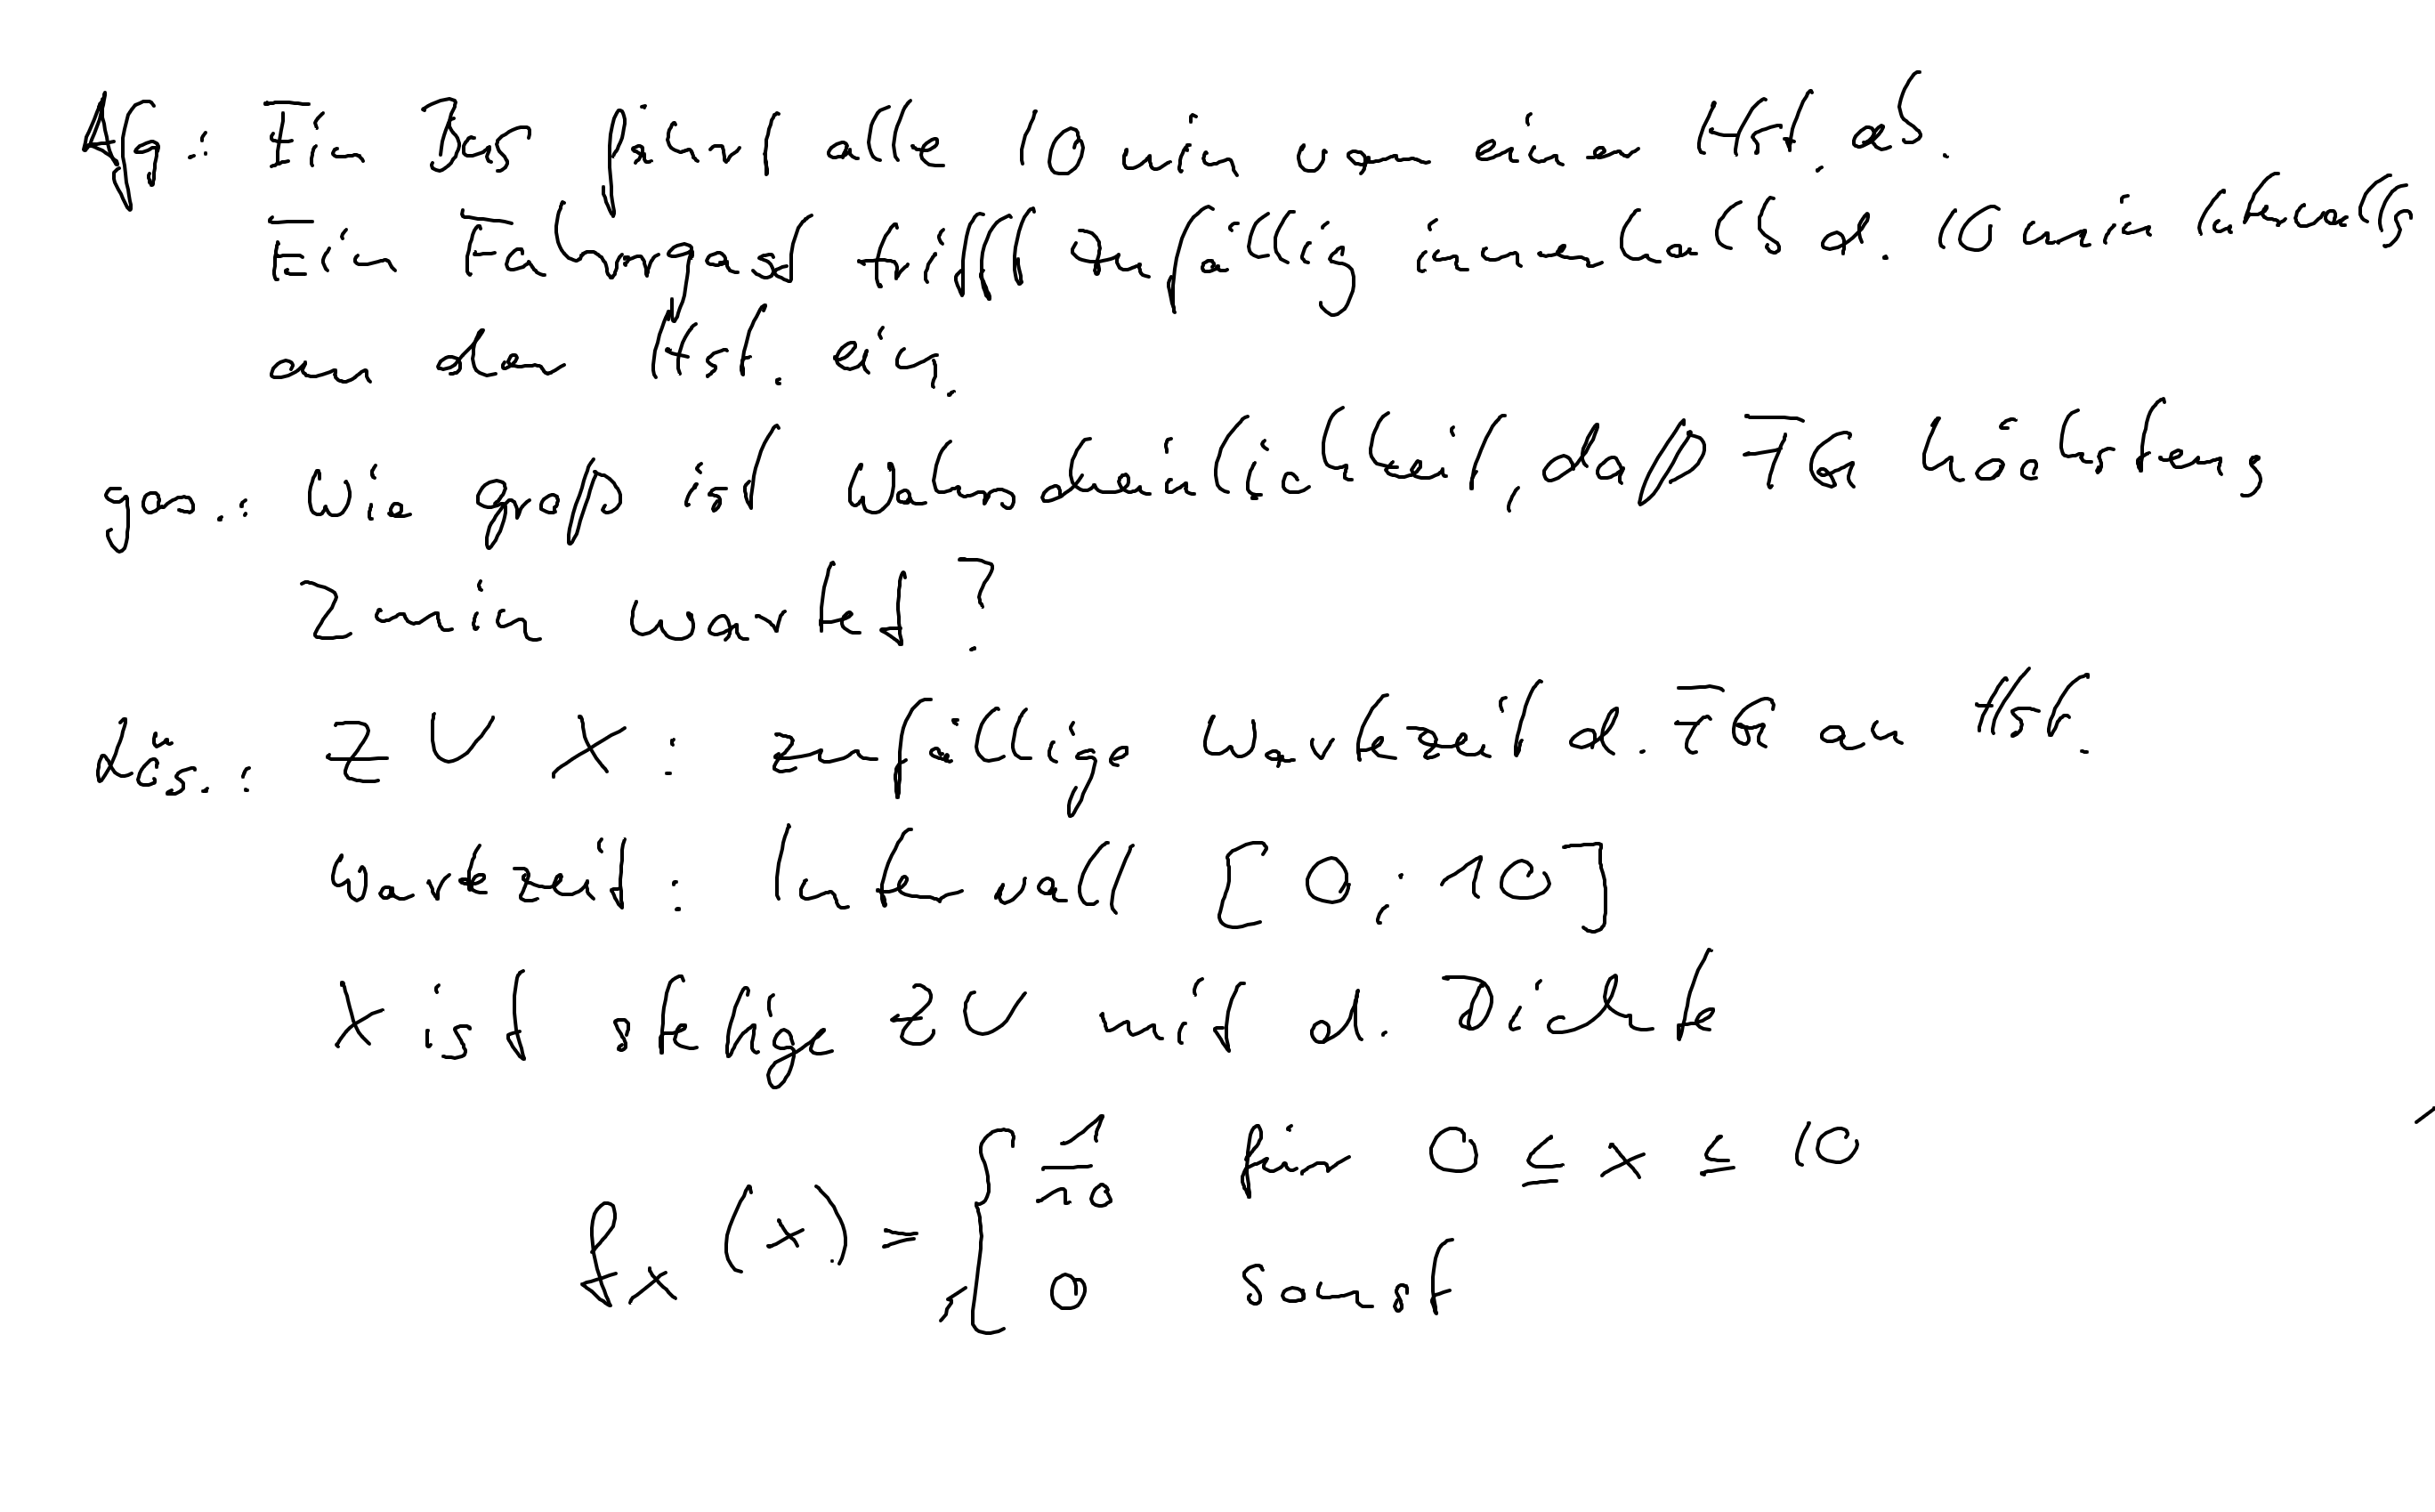 Afg.: Ein Bus fährt alle 10 min von einer Hst. ab.
Ein Fahrgast trifft zufällig innerhalb d. 10 min Intervalls
an der Hst. ein.
ges.: Wie groß ist Wahrscheinlichkeit, daß FG höchstens
2 min wartet?
Lös.: ZV X: zufällige Wartezeit d. FG an Hst.
Wartezeit: Intervall [0; 10]
X ist stetige ZV mit d. Dichte
f_X (x) = { 1/10 für 0 ≤ x ≤ 10
0 sonst